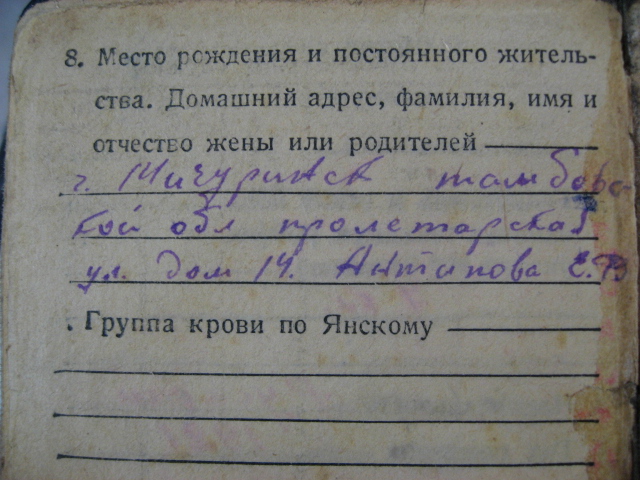 8. Место рождения и постоянного житель-
ства. Домашний адрес, фамилия, имя и
отчество жены или родителей
г. Мичуринск тамбовс-
кой обл пролетарская
ул. дом 14. Антипова Е.В
. Группа крови по Янскому